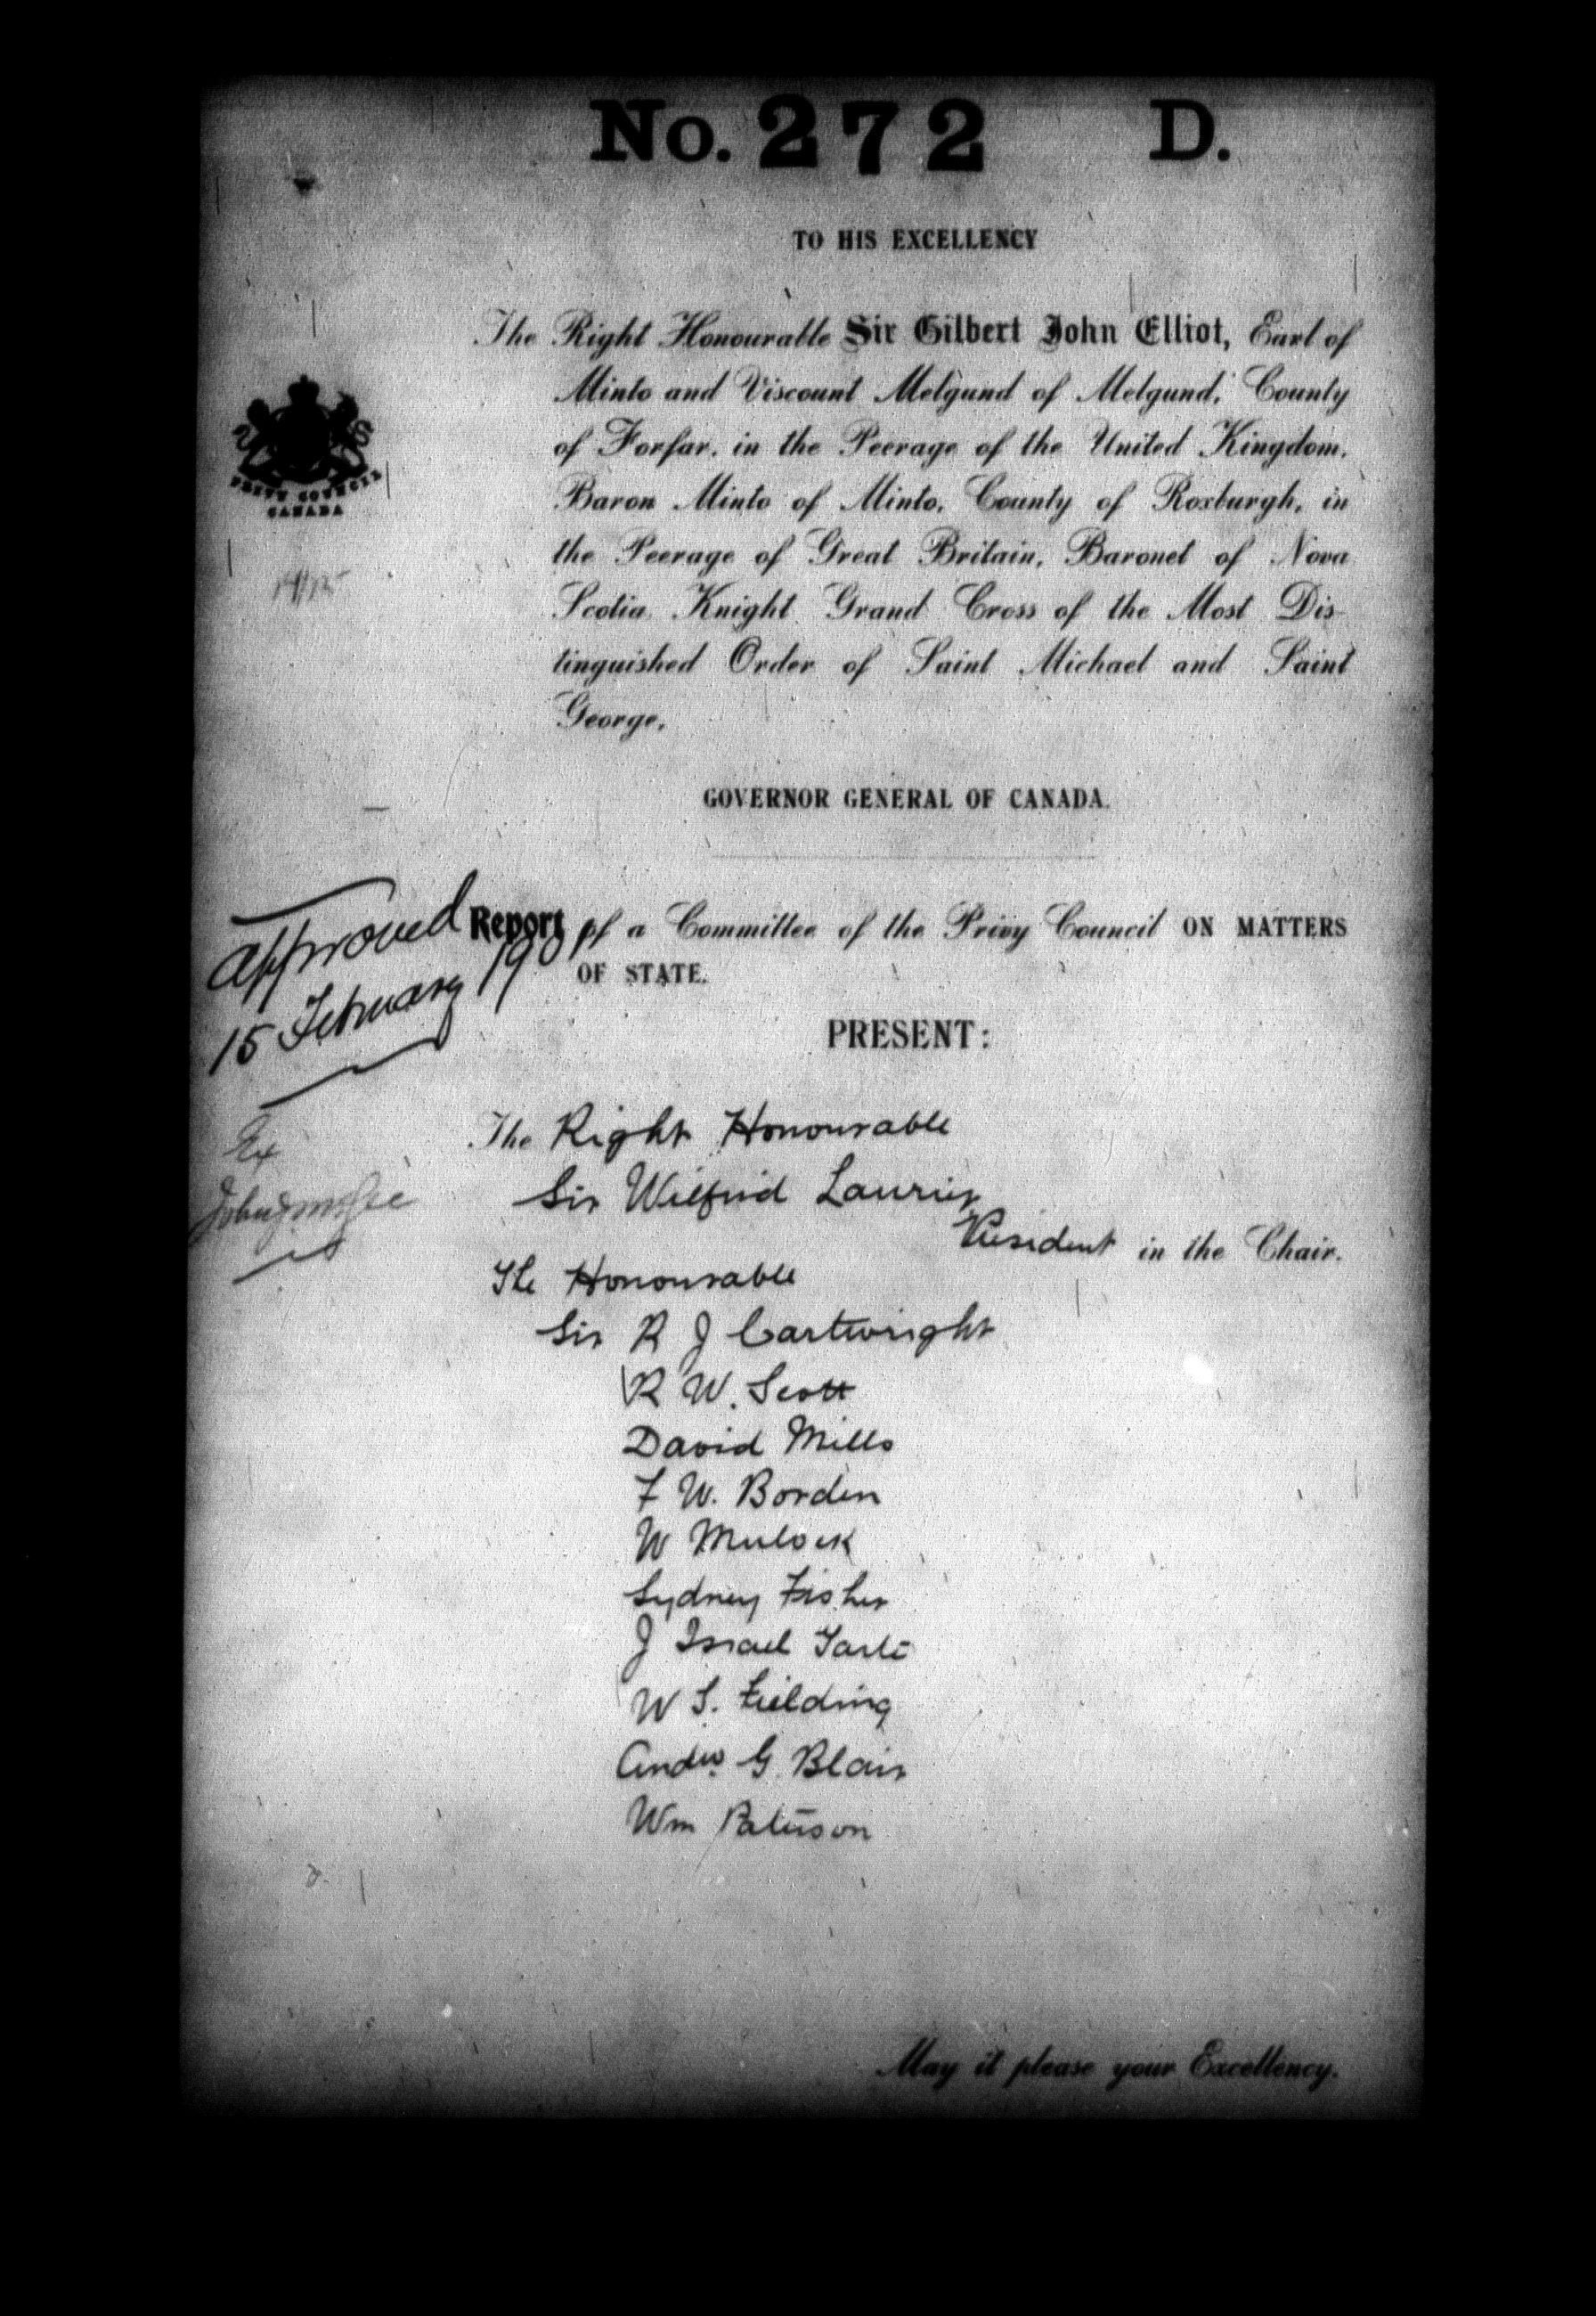 No. 272 D.
TO HIS EXCELLENCY
The Right Honourable Sir Gilbert John Elliot, Earl of
Minto and Viscount Melgund of Melgund, County
of Forfar, in the Peerage of the United Kingdom,
Baron Minto of Minto, County of Roxburgh, in
the Peerage of Great Britain, Baronet of Nova
Scotia, Knight Grand Cross of the Most Dis-
tinguished Order of Saint Michael and Saint
George,
PRIVY COUNCIL
CANADA
GOVERNOR GENERAL OF CANADA.
Approved
15 February 1901
Report of a Committee of the Privy Council ON MATTERS
OF STATE.
PRESENT:
Ex
The Right Honourable
Sir Wilfrid Laurier
President in the Chair.
The Honourable
Sir R J Cartwright
R W. Scott
David Mills
F W. Borden
W Mulock
Sydney Fisher
J Israel Tarte
W S. Fielding
Andw. G. Blair
Wm Paterson
May it please your Excellency.